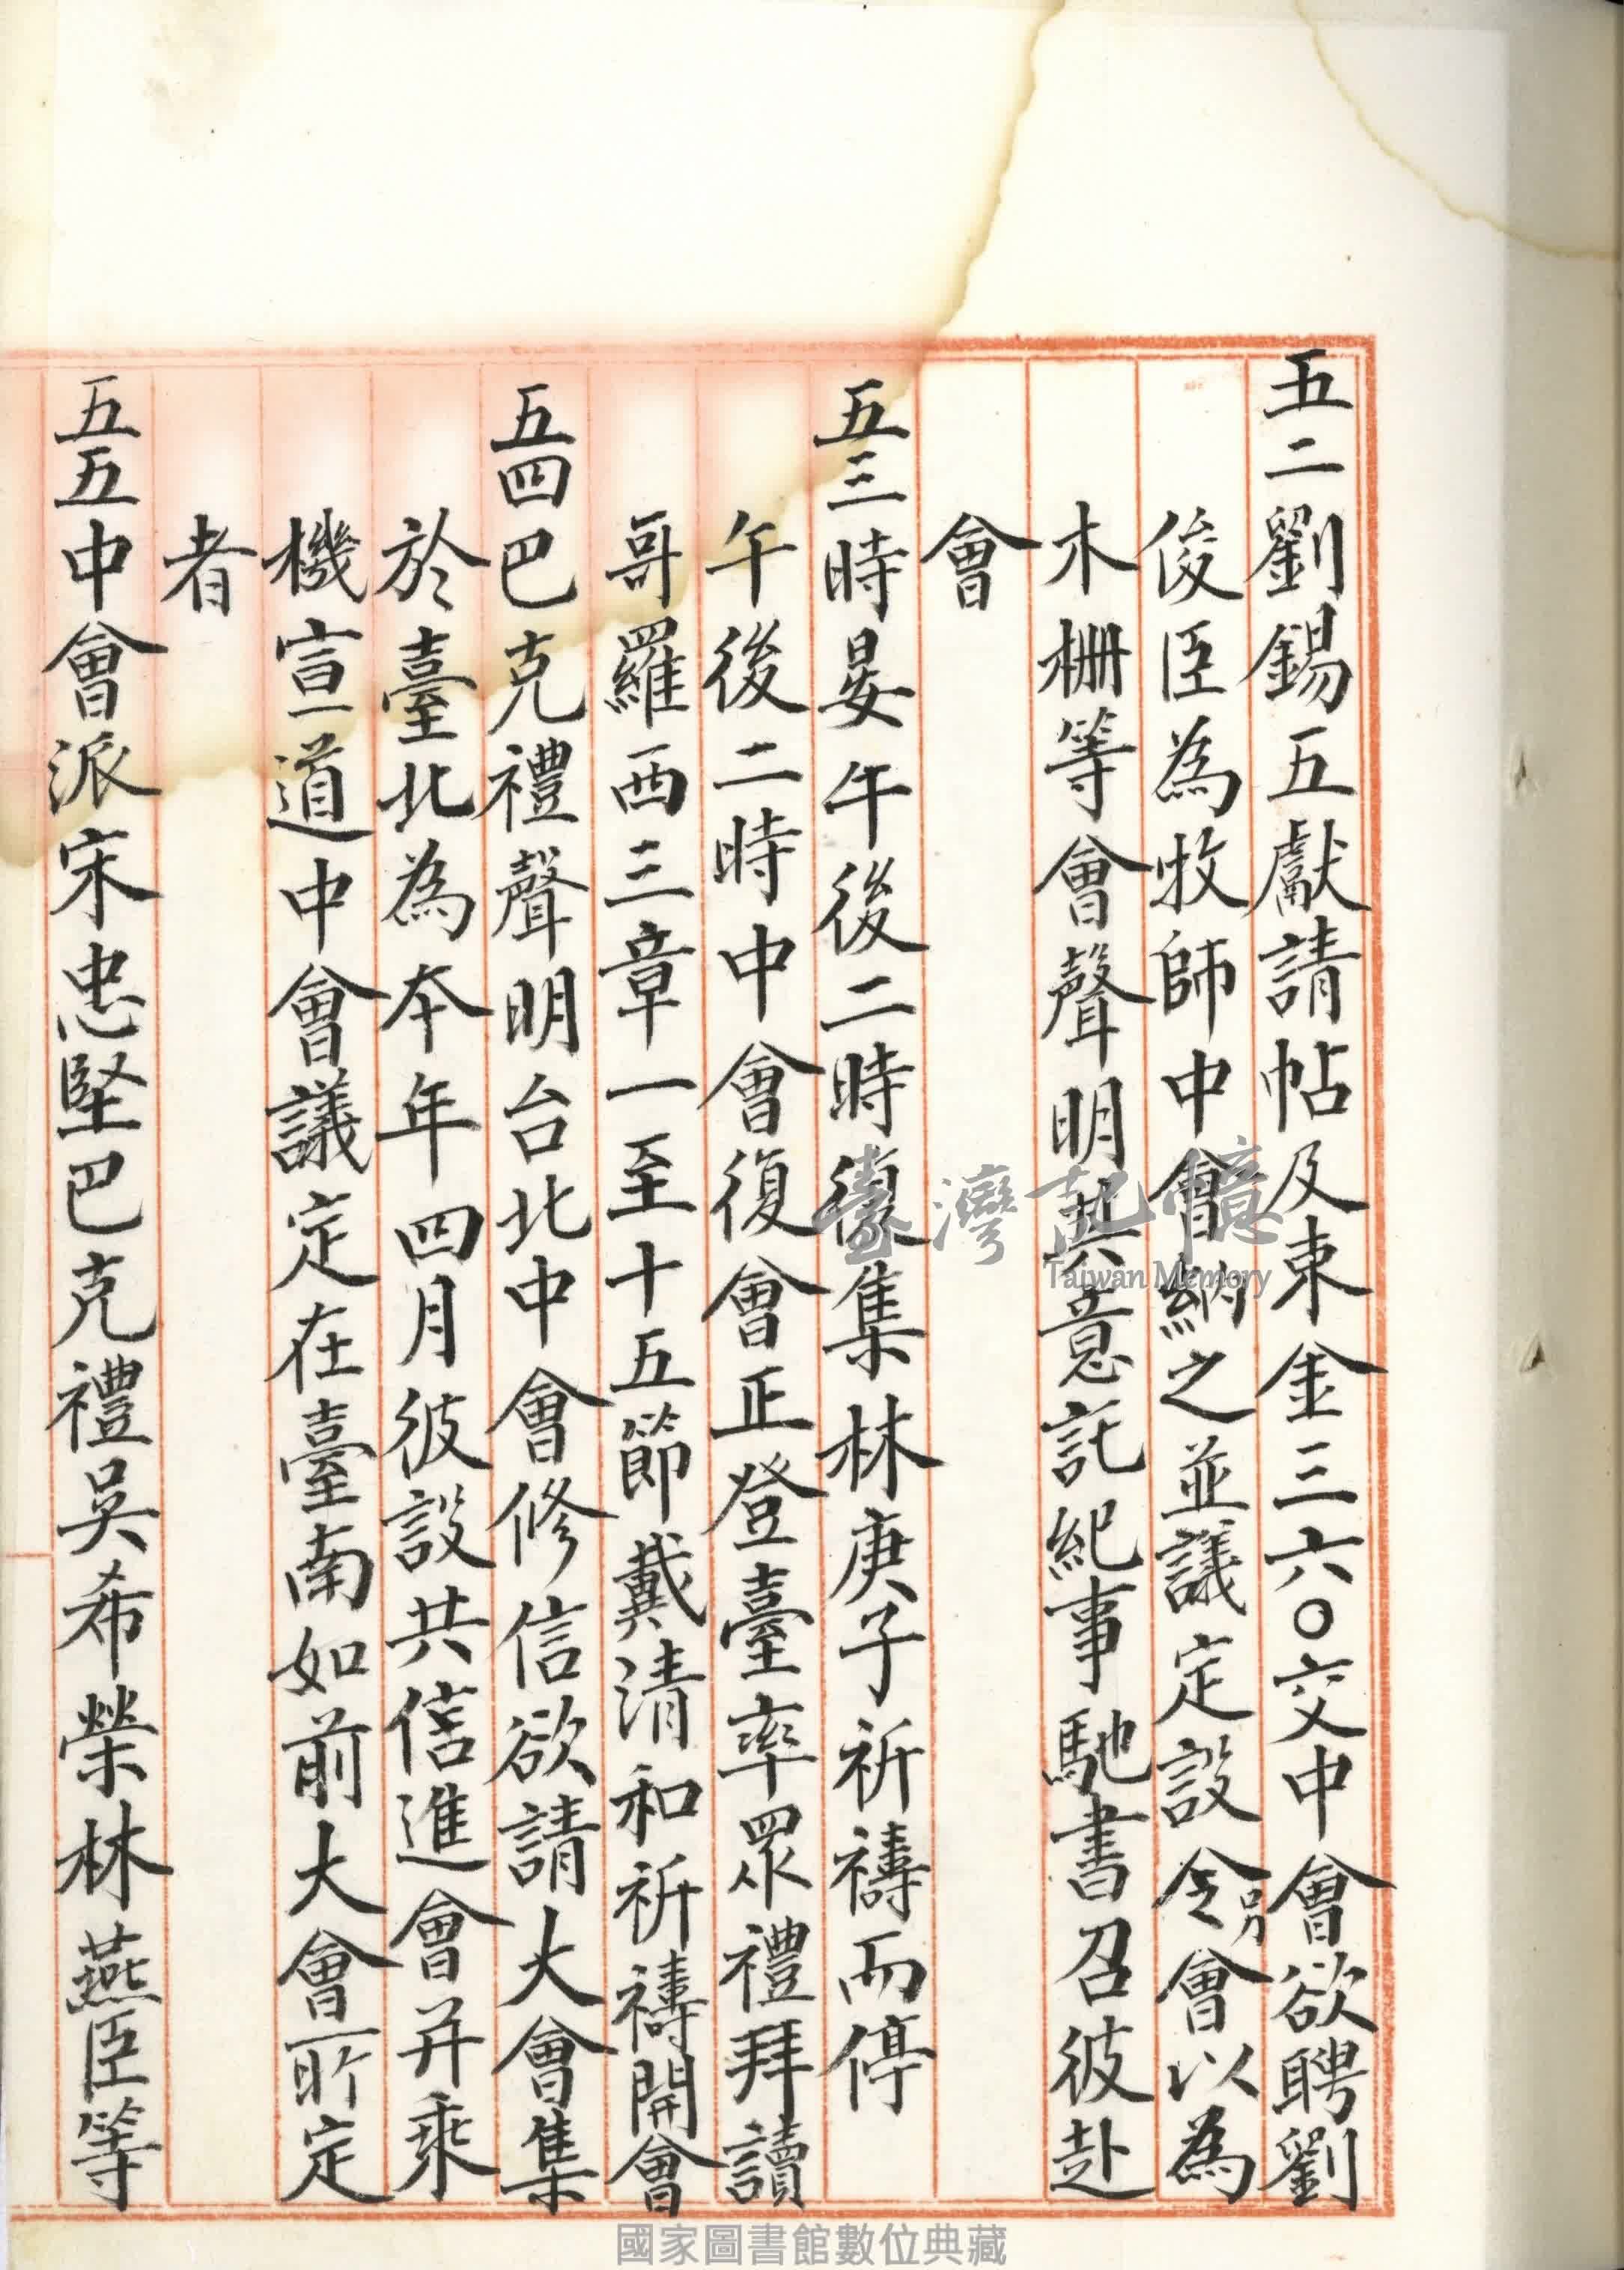 五二劉錫五獻請帖及束金三六〇交中會欲聘劉
俊臣為牧師中會納之並議定設另會以為
木柵等會聲明其意託紀事馳書召彼赴
會
五三時晏午後二時復集林庚子祈禱而停
午後二時中會復會正登臺率眾禮拜讀
哥羅西三章一至十五節戴清和祈禱開會
五四巴克禮聲明台北中會修信欲請大會集
於臺北為本年四月彼設共信進會并乘
機宣道中會議定在臺南如前大會所定
者
五五中會派宋忠堅巴克禮吳希榮林燕臣等
臺灣記憶
Taiwan Memory
國家圖書館數位典藏